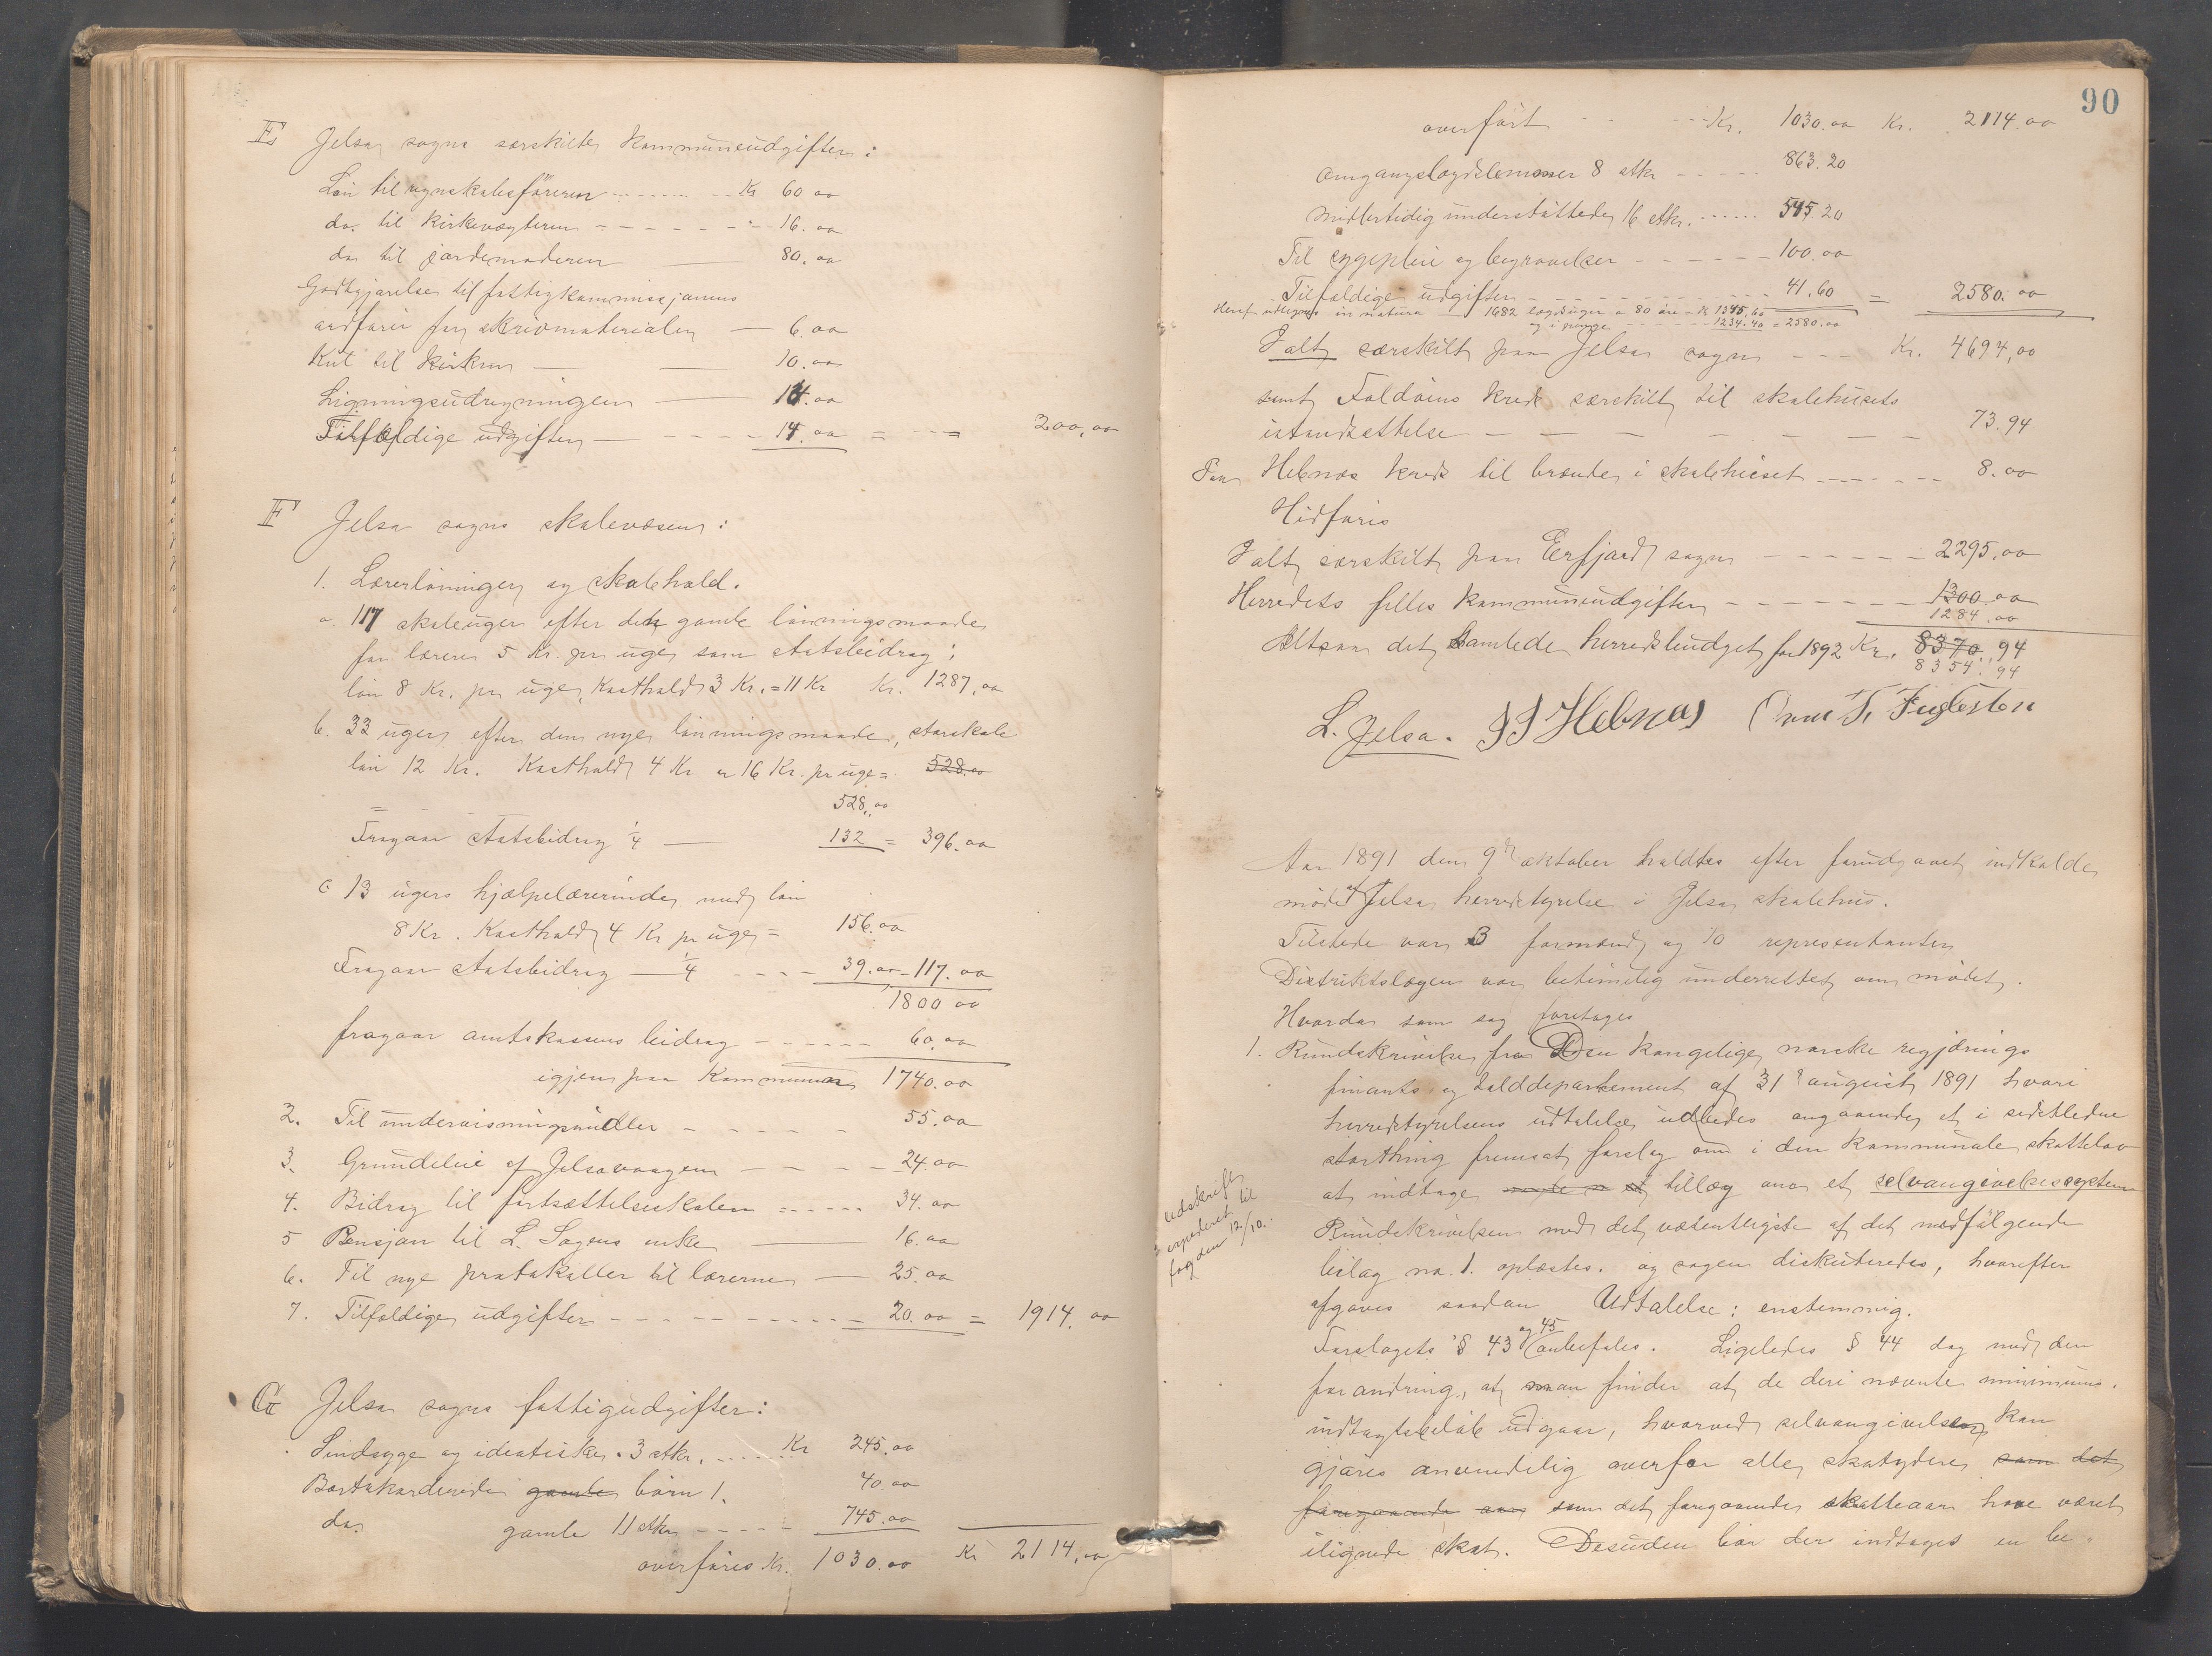 E Jelsa sogns særskilte kommuneudgifter:
Løn til regnskabsføreren Kr 60 00
do. til kirkevægteren 16.00
do til jordemoderen 80.00
Godtgjørelse til fattigkommissjonens
ordfører for skrivmaterialer 6.00
Kut til kirken 10.00
Ligningsudregningen 14.00
Tilfældige udgifter 14.00 = 200,00
F Jelsa sogns skolevæsen:
1. Lærerlønninger og skolehold.
a 117 skoleuger efter den gamle lønningsmaade
for lærere 5 Kr. pr uge som statsbidrag;
løn 8 Kr. pr uge, Kosthold 3 Kr. = 11 Kr Kr. 1287,00
b. 33 uger efter den nye lønningsmaade, storskole
løn 12 Kr. Kosthold 4 Kr er 16 Kr. pr uge = 528.00
= 528,00
Fragaar statsbidrag 1/4 132 = 396.00
c 13 ugers hjælpelærerinde med løn
8 Kr. Kosthold 4 Kr pr uge = 156.00
Fragaar statsbidrag 1/4 39.00 - 117.00
1800 00
fragaar amtskassens bidrag 60.00
igjen paa Kommunen 1740.00
2. Til undervisningsmidler 55.00
3. Grundleie af Jelsavaagen 24.00
4. Bidrag til fortsættelsesskolen 34.00
5 Pensjon til L. Sogens enke 16.00
6. Til nye protokoller til lærerne 25.00
7. Tilfældige udgifter 20.00 = 1914.00
G Jelsa sogns fattigudgifter:
Sindsyge og ideotiske. 3 stkr. Kr 245.00
Bortakorderede gamle børn 1. 40.00
do. gamle 11 stkr 745.00
overføres Kr. 1030.00 Kr 2114,00
90
overført Kr. 1030.00 Kr. 2114.00
Omgangslægdslemmer 8 stkr 863.20
Midlertidig understøttede 16 stkr. 545.20
Til sygepleie og begravelser 100.00
Tilfældige udgifter 41.60 = 2580.00
Heraf udlignes in natura 1682 lægdsuger a 80 øre = Kr 1345,60
og i penge 1234.40 = 2580.00
I alt særskilt paa Jelsa sogn Kr. 4694,00
samt Foldøens kreds særskilt til skolehusets
istandsættelse 73.94
Paa Hebnæs kreds til brænde i skolehuset 8.00
Hidføres
I alt særskilt paa Erfjord sogn 2295,00
Herredets fælles kommuneudgifter 1300.00
1284.00
Altsaa det samlede herredsbudget for 1892 Kr. 8370.94
8354.94
L. Jelsa. J J Hebnæs Ommund T. Fuglesten
Aar 1891 den 9de oktober holdtes efter forudgaaet indkaldelse
møde af Jelsa herredstyrelse i Jelsa skolehus.
Tilstede var 3 formænd og 10 representanter
Distriktslægen var betimelig underrettet om mødet.
Hvorda som sag foretages
1. Rundskrivelse fra Den kongelige norske regjærings
finants og tolddepartement af 31te august 1891 hvori
herredstyrelsens udtalelse udbedes angaaende et i sidstledne
storthing fremsat forslag om i den kommunale skattelov
at indtage tillæg om et selvangivelsessystem
Rundskrivelsen med det væsentligste af det medfølgende
bilag no. 1. oplæstes. og sagen diskuteredes, hvorefter
afgaves saadan Udtalelse: enstemmig.
Forslagets § 43 og 45 anbefales. Ligeledes § 44 dog med den
forandring, at man finder at de deri nævnte minimums-
indtægtsbeløb udgaar, hvorved selvangivelse kan
gjøres anvendelig overfor alle skatydere som det
foregaaende aar som det foregaaende skatteaar have været
ilignede skat. Desuden bør der indtages en be-
udskrift
expederet til
fogden 12/10.